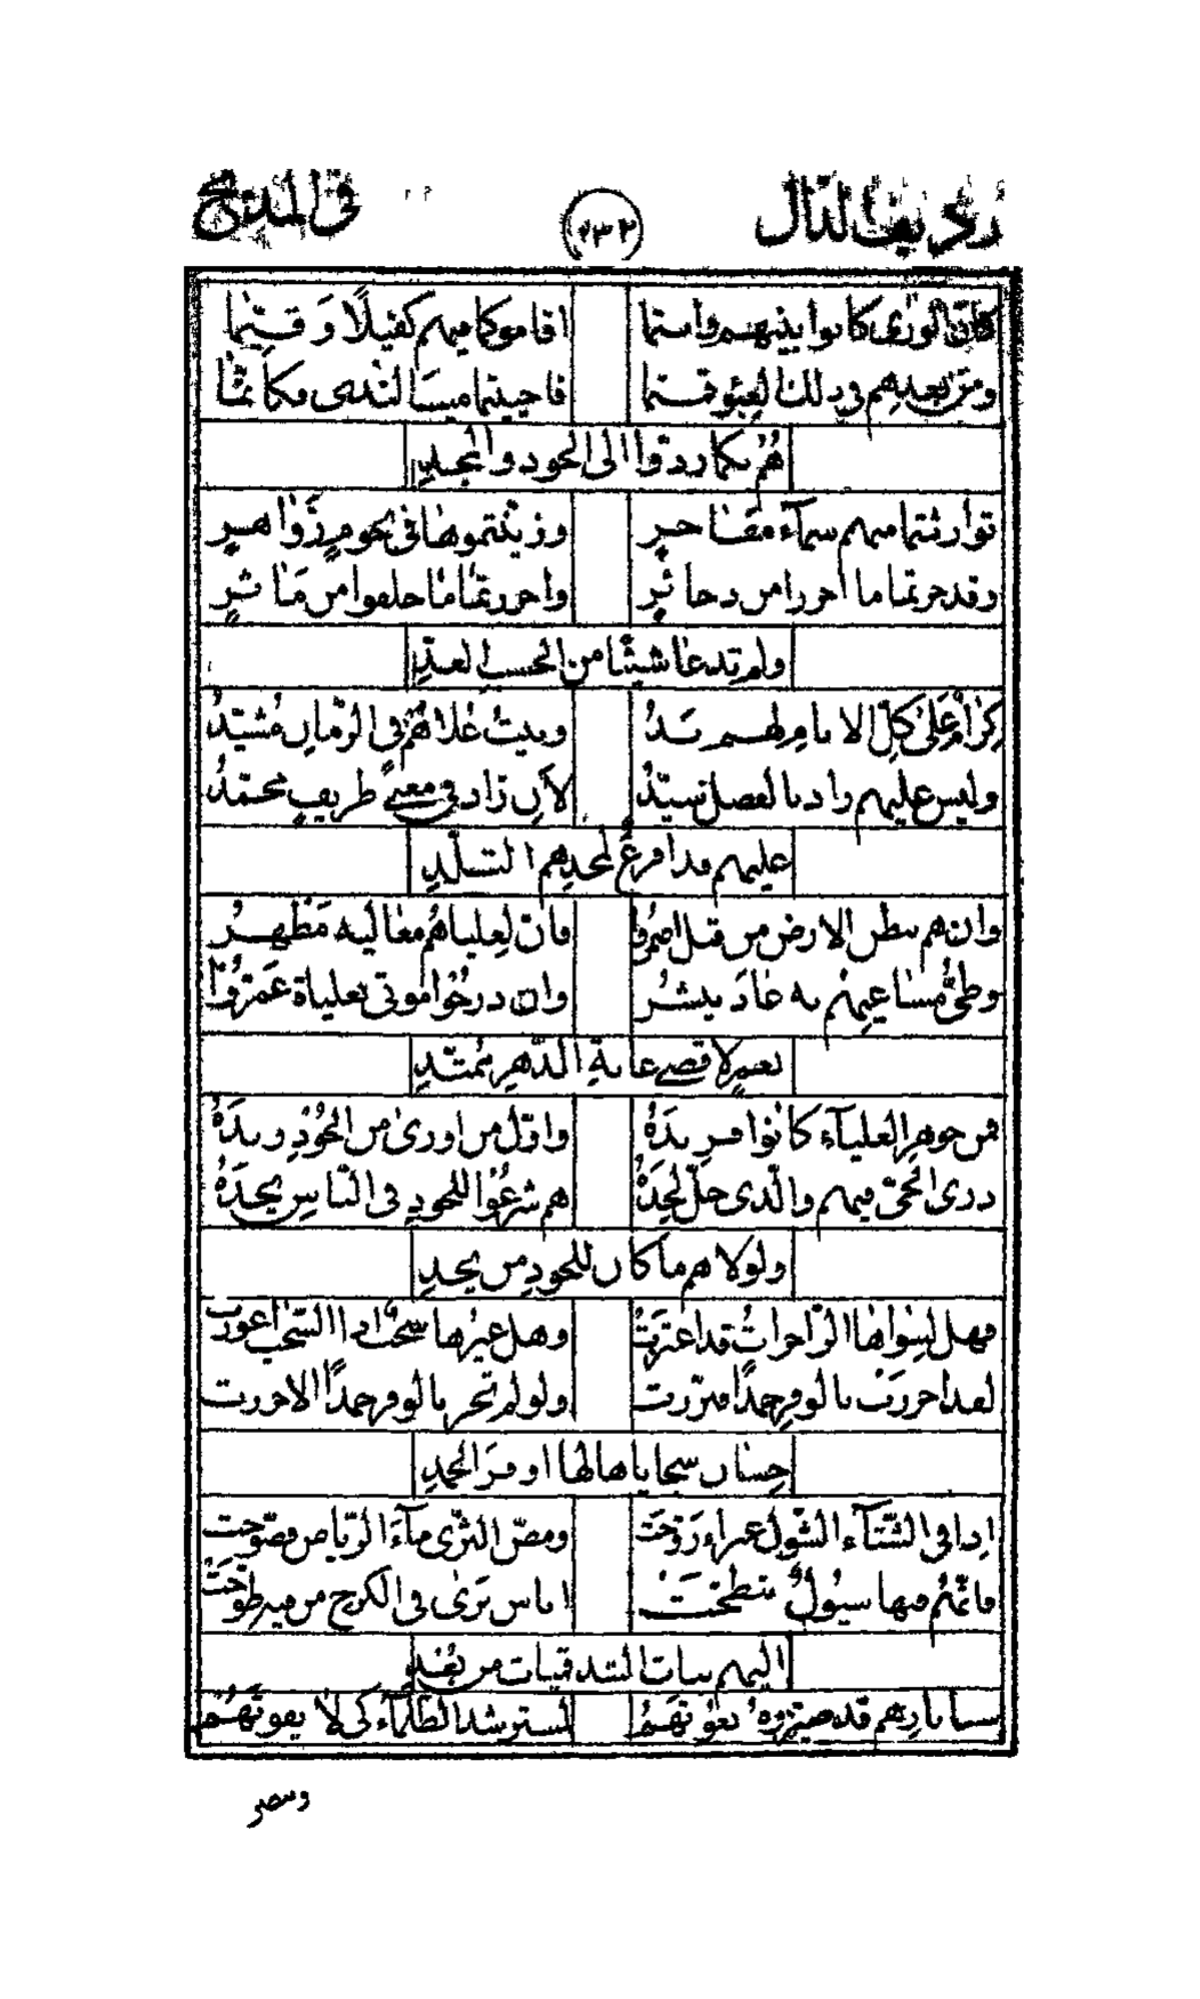 رديف الدال ١٣٢ في المديح
كان الورى كانوا بنيهم وانتما اقاموكما فيهم كفيلًا وقيّما
ومن بعدهم في ذلك فاحييتما ميت الندى فكأنّما
هُم بكما ردّوا الى الجود والمجدِ
توارثتما منهم سمآء مفاخرٍ وزينتموها في نجومٍ زواهرٍ
وقد حزتما ما احرزوا من ذخائرٍ واحرزتما ما خلفوا من مآثرٍ
ولم تدعا شيئًا من الحسب العدِّ
كرامٌ على كلّ الانام لهم يدُ وبيتُ علاهُم في الزمان مُشيّدُ
وليس عليهم زاد بالفضل سيّدُ لأن زاد في معنىً طريفٍ محمّدُ
عليهم فذا فرعٌ لمجدهم التلدِ
وان هم ببطن الارض من قبل اضمروا فان لعلياهم معاليه مظهرُ
وطيُّ مساعيهم به عاد ينشرُ وان درجوا موتى بعلياه عمّروا
بعمرٍ لاقصى غاية الدّهر ممتدِّ
فمن جوهر العليآء كانوا فرندَهُ واوّل من اورى من الجود زندَهُ
درى الحيّ فيهم والذي حلّ لحدَهُ هم شرعوا للجود في الناس نجدَهُ
ولولاهم ما كان للجود من نجدِ
فهل لسواها الزّاخراتُ قد اعتزت وهل غيرها سحبٌ اذا السّحب اعوزت
لقد احرزت بالوفر حمدًا فبرّزت ولو لم تحز بالوفر حمدًا لاحرزت
حسان سجاياها لها اوفر الحمدِ
اذا في الشتآء الشّول غبراء روّحت ومصّ الثرى مآء الرياض فصوّحت
فاثمّ فيها سيولٌ تبطّحت اناس ترى في الكرخ من فيه طوّحت
اليهم بنات الشدقميات من بُعدِ
سنا نارهم قد صيّروه نعوتهم لتسترشد الظلمآء كي لا يفوتهم